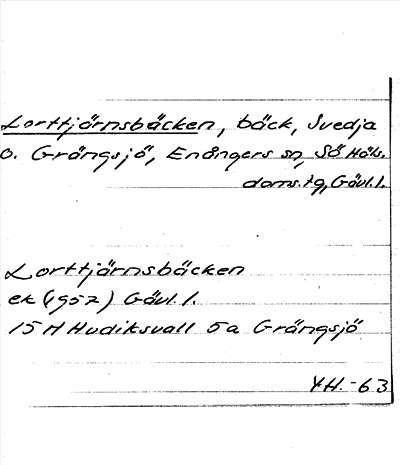 Lorttjärnsbäcken, bäck, Svedja
o. Grängsjö, Enångers sn, Sö Häls.
doms.tg, Gävl.l.
Lorttjärnsbäcken
ek (1957) Gävl. l.
15 H Hudiksvall 5a Grängsjö
YH.-63